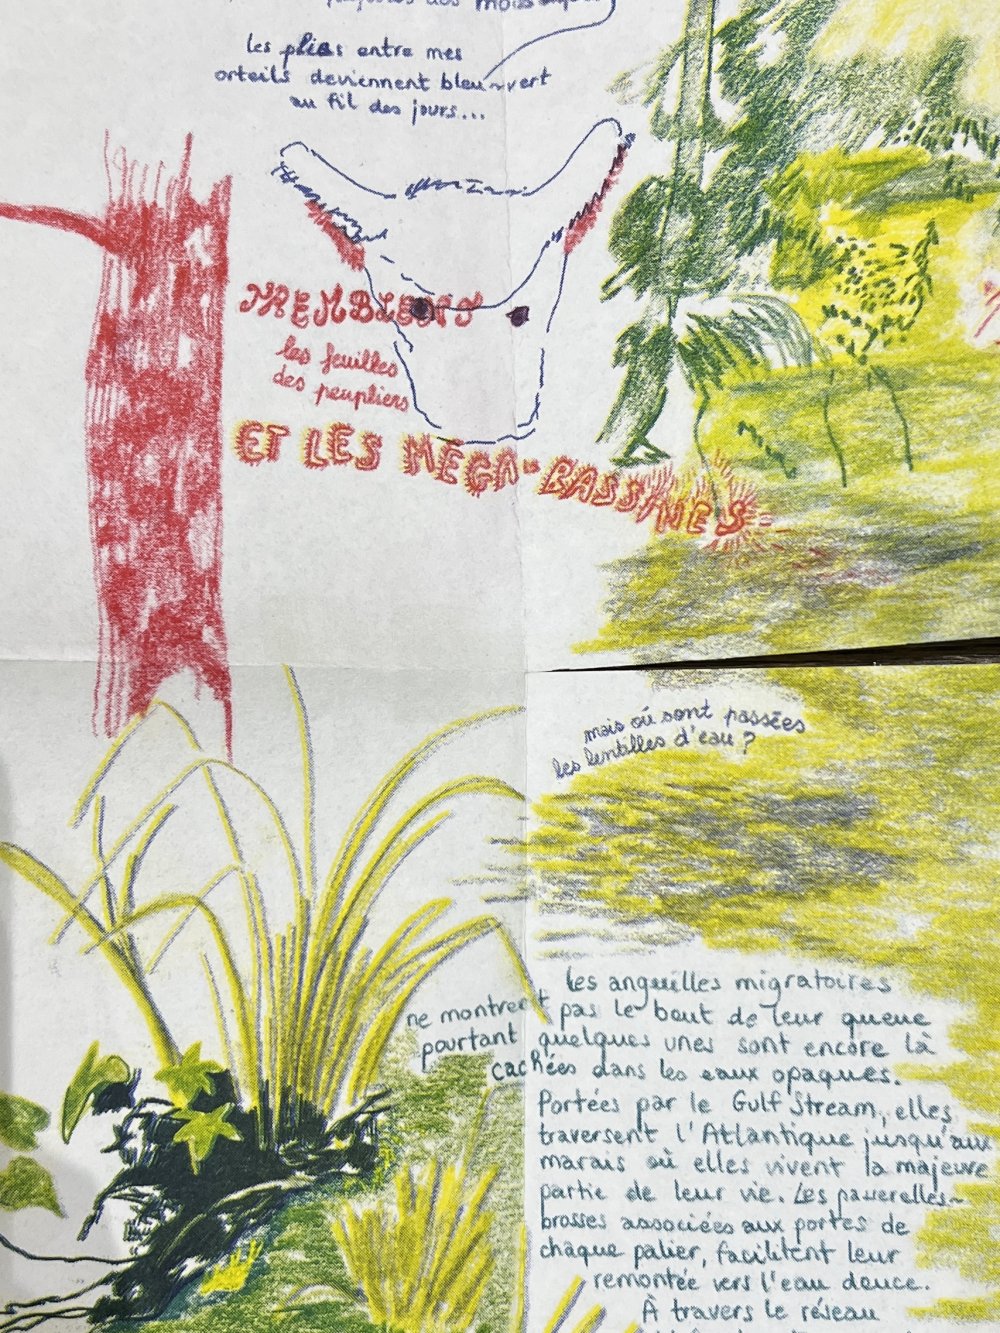 les plies entre mes
orteils deviennent bleu~vert
au fil des jours...
TREMBLENT
les feuilles
des peupliers
ET LES MEGA-BASSINES
mais où sont passées
les lentilles d'eau ?
Les anguilles migratoires
ne montrent pas le bout de leur queue
pourtant quelques unes sont encore là
cachées dans les eaux opaques.
Portées par le Gulf Stream, elles
traversent l'Atlantique jusqu'aux
marais où elles vivent la majeure
partie de leur vie. Les passerelles~
brosses associées aux portes de
chaque palier, facilitent leur
remontée vers l'eau douce.
À travers le réseau